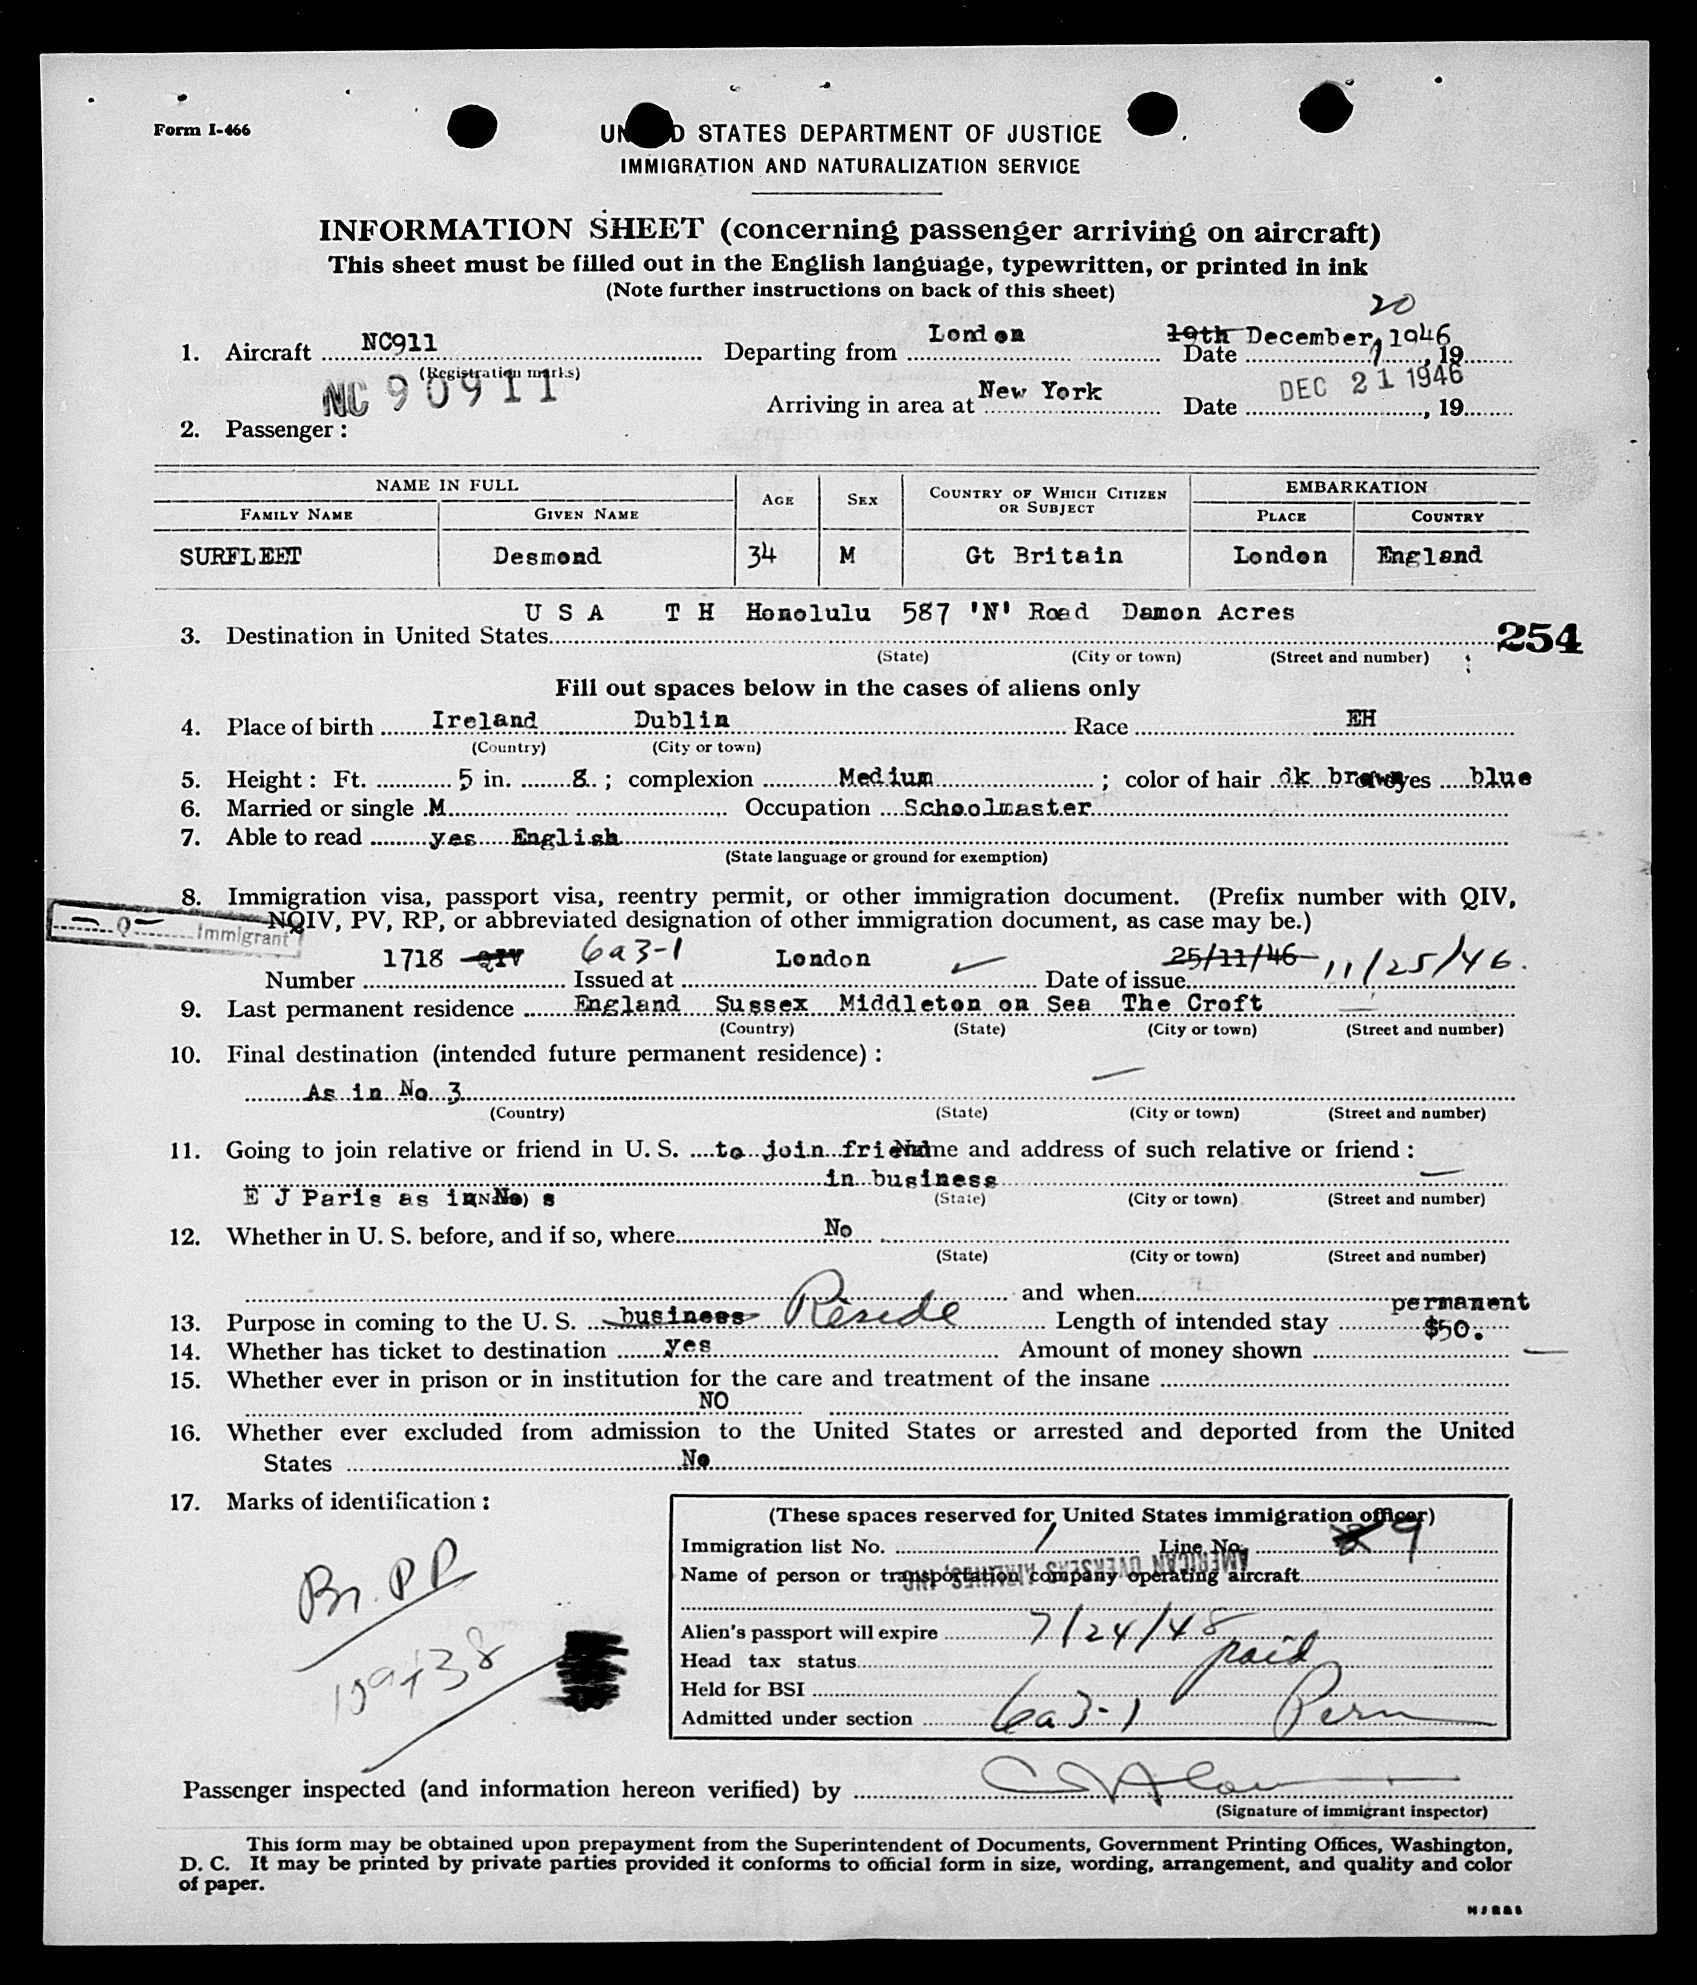 Form I-466
UNITED STATES DEPARTMENT OF JUSTICE
IMMIGRATION AND NATURALIZATION SERVICE
INFORMATION SHEET (concerning passenger arriving on aircraft)
This sheet must be filled out in the English language, typewritten, or printed in ink
(Note further instructions on back of this sheet)
20
1. Aircraft NC911 Departing from London Date 19th December, 1946, 19
(Registration marks)
NC 90911
Arriving in area at New York Date DEC 21 1946, 19
2. Passenger:
NAME IN FULL AGE SEX COUNTRY OF WHICH CITIZEN OR SUBJECT EMBARKATION
FAMILY NAME GIVEN NAME PLACE COUNTRY
SURFLEET Desmond 34 M Gt Britain London England
U S A T H Honolulu 587 'N' Road Damon Acres
3. Destination in United States 254
(State) (City or town) (Street and number)
Fill out spaces below in the cases of aliens only
4. Place of birth Ireland Dublin Race EH
(Country) (City or town)
5. Height: Ft. 5 in. 8; complexion Medium; color of hair dk brown eyes blue
6. Married or single M Occupation Schoolmaster
7. Able to read yes English
(State language or ground for exemption)
8. Immigration visa, passport visa, reentry permit, or other immigration document. (Prefix number with QIV,
NQIV, PV, RP, or abbreviated designation of other immigration document, as case may be.)
Q Immigrant
Number 1718 QIV 6a3-1 Issued at London Date of issue 25/11/46 11/25/46.
9. Last permanent residence England Sussex Middleton on Sea The Croft
(Country) (State) (City or town) (Street and number)
10. Final destination (intended future permanent residence):
As in No 3
(Country) (State) (City or town) (Street and number)
11. Going to join relative or friend in U. S. to join friend Name and address of such relative or friend:
in business
E J Paris as in No s
(State) (City or town) (Street and number)
12. Whether in U. S. before, and if so, where No
(State) (City or town) (Street and number)
and when
13. Purpose in coming to the U. S. business Reside Length of intended stay permanent
14. Whether has ticket to destination yes Amount of money shown $50.
15. Whether ever in prison or in institution for the care and treatment of the insane
NO
16. Whether ever excluded from admission to the United States or arrested and deported from the United
States No
17. Marks of identification:
Br. PP
(These spaces reserved for United States immigration officer)
Immigration list No. 1 Line No. 9
Name of person or transportation company operating aircraft
AMERICAN OVERSEAS AIRLINES, INC
Alien's passport will expire 7/24/48
Head tax status paid
Held for BSI
Admitted under section 6a3-1 Perm
Passenger inspected (and information hereon verified) by
(Signature of immigrant inspector)
This form may be obtained upon prepayment from the Superintendent of Documents, Government Printing Offices, Washington,
D. C. It may be printed by private parties provided it conforms to official form in size, wording, arrangement, and quality and color
of paper.